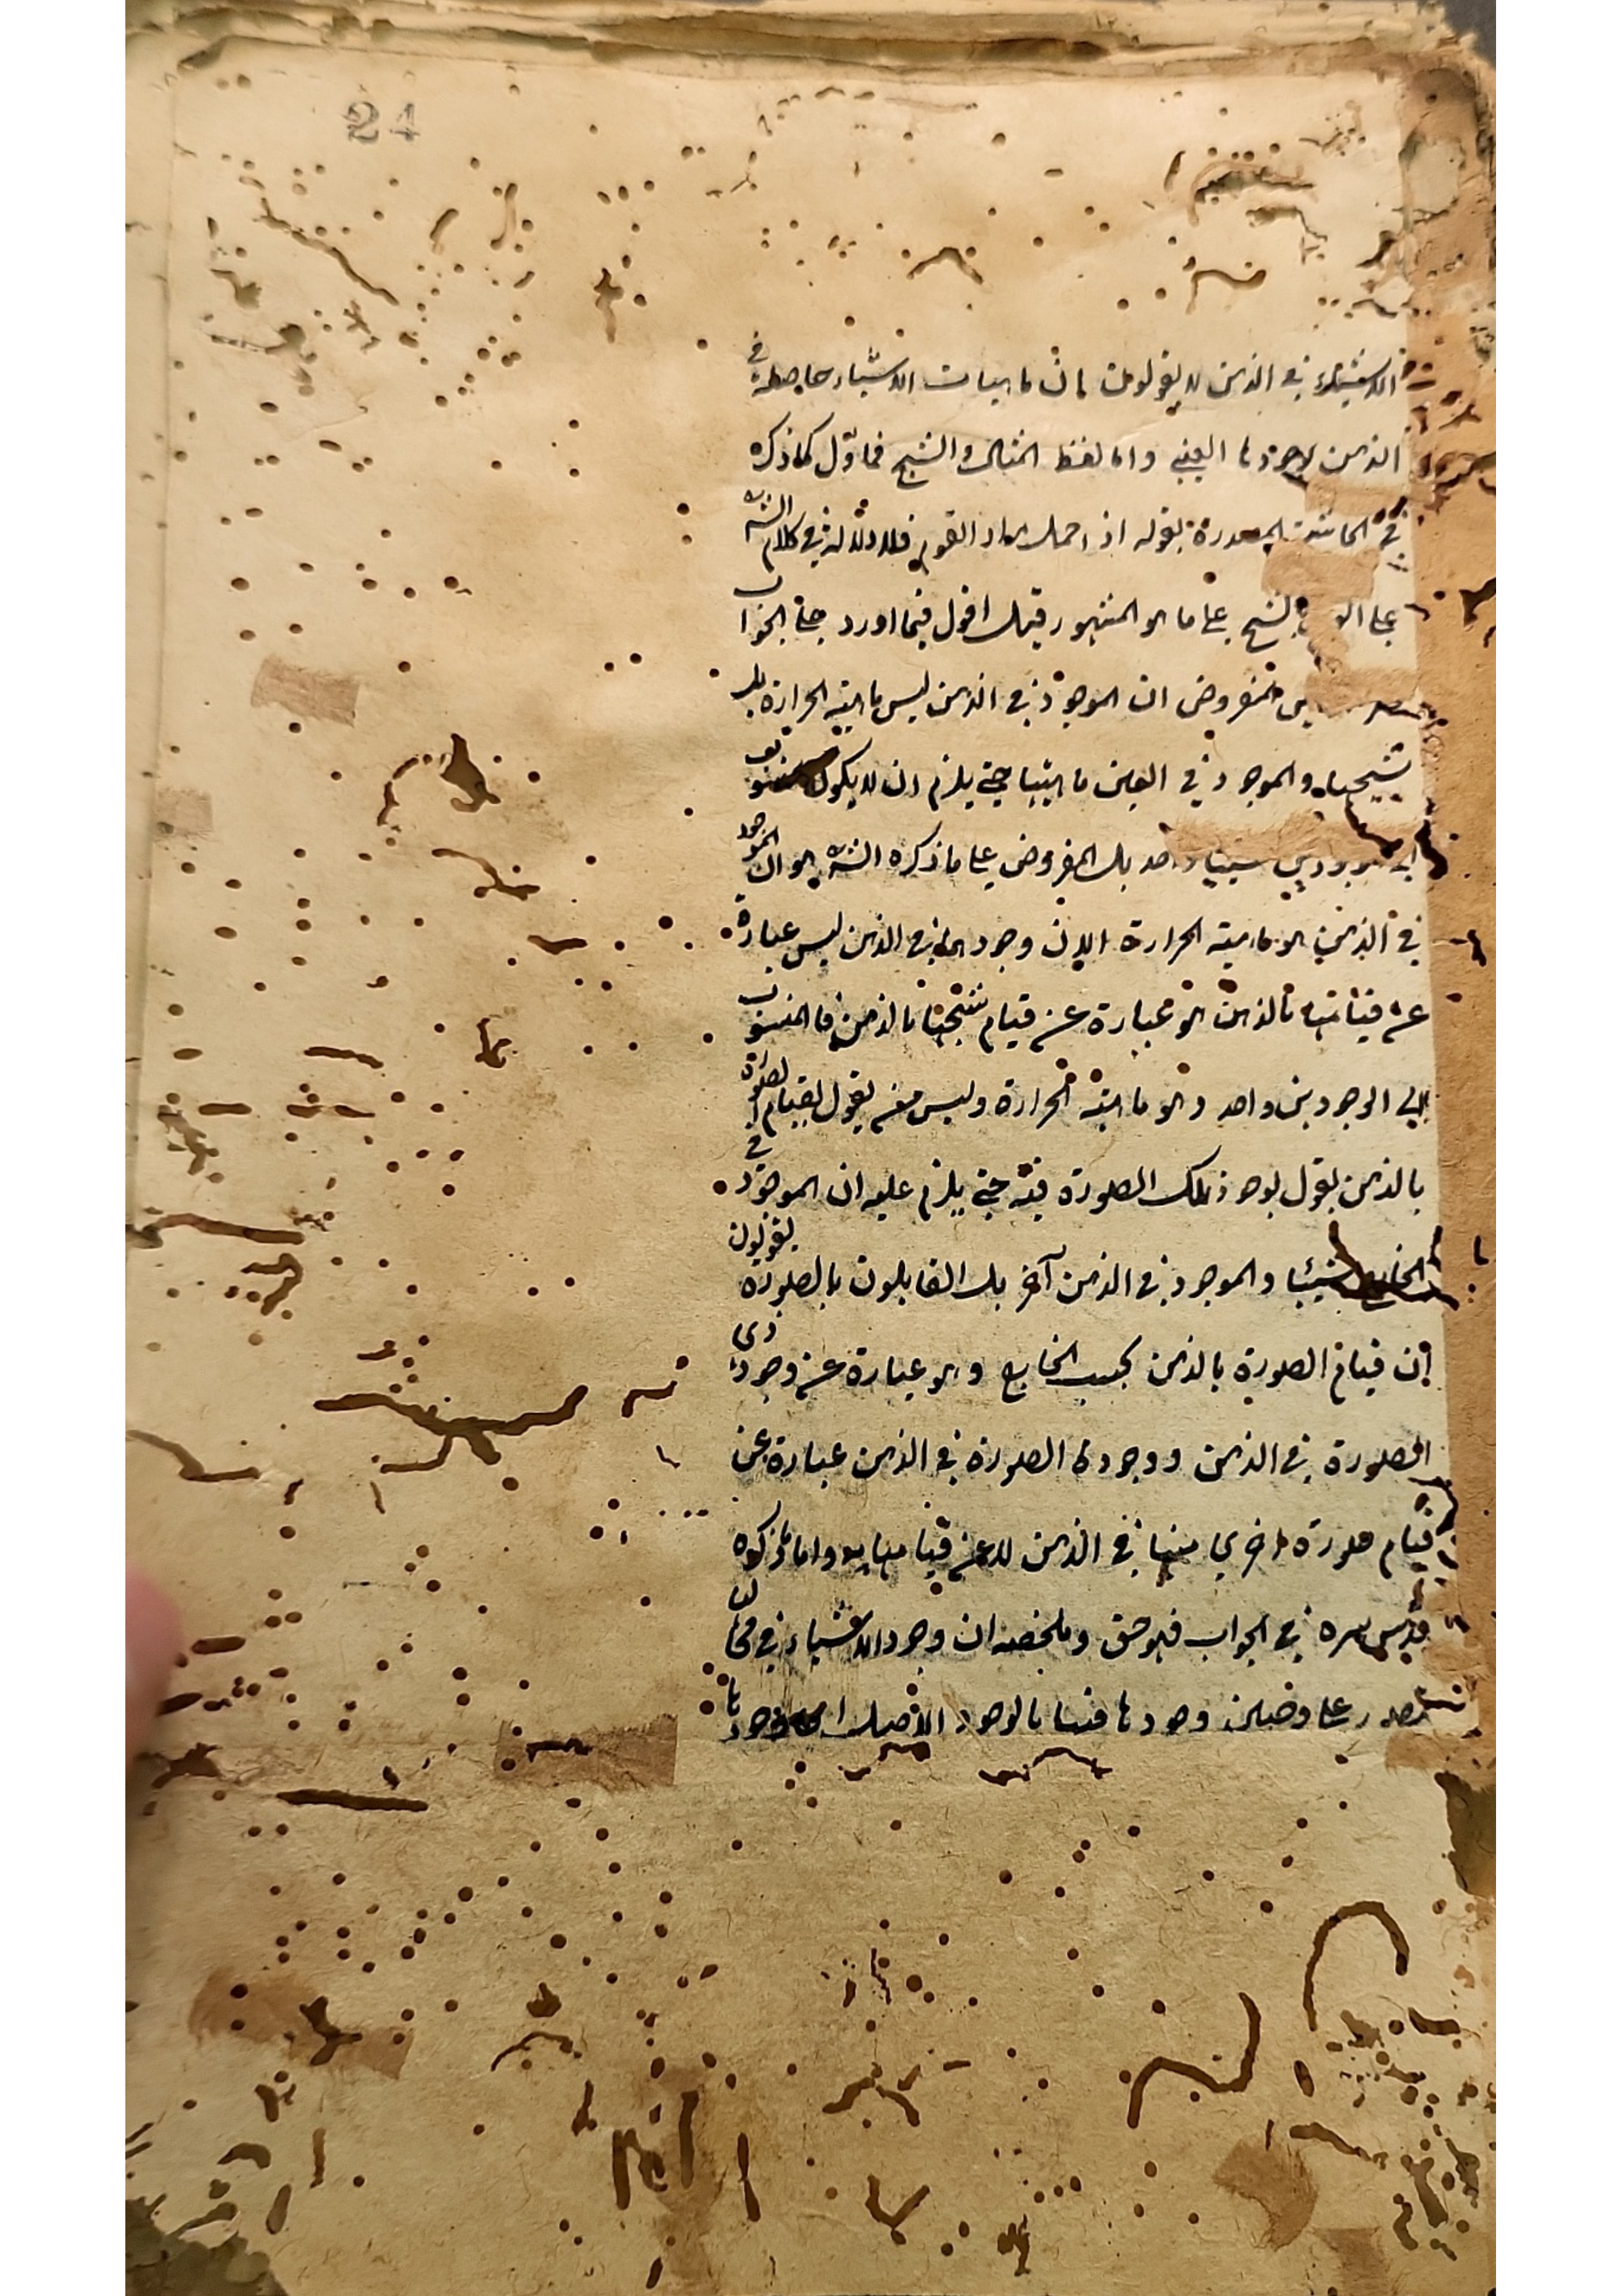 24
الاشياء في الذهن لا يقولون بان ماهيات الاشياء حاصلة في
الذهن بوجودها العيني واما لفظ المثال والشبح فماوّل كما ذكره
في الحاشية المصدرة بقوله اذ القوم فلا دلالة في كلام الش
على بالشبح على ما هو المشهور قيل اقول فيما اورد الجواب
المفروض ان الموجود في الذهن ليس ماهية الحرارة بل
شبحها والموجود في العين ماهيتها حتى يلزم ان لا يكون
شيئا واحد بل المفروض على ما ذكره الش هو ان الموجود
في الذهن هو ماهية الحرارة الا ان وجودها في الذهن ليس عبارة
عن قيامها بالذهن هو عبارة عن قيام شبحها بالذهن فالمنسوب
الى الوجودين واحد وهو ماهية الحرارة وليس من يقول بقيام الصورة
بالذهن يقول بوجود تلك الصورة فيه حتى يلزم عليه ان الموجود في
الخارج شيئا والموجود في الذهن آخر بل القايلون بالصورة يقولون
ان قيام الصورة بالذهن بحسب الخارج وهو عبارة عن وجود ذى
الصورة في الذهن ووجود الصورة في الذهن عبارة عن
قيام صورة اخرى منها في الذهن لا عن قيامها به واما ما ذكره
قدس سره في الجواب فهو حق وملخصه ان وجود الاشياء في
على وجودها فيها بالوجود الاصيل وجودها